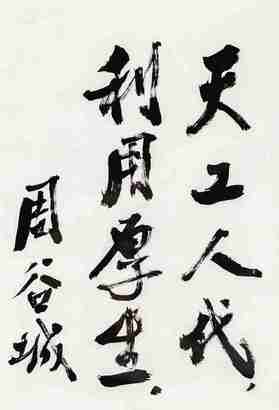 天工人代
利用厚生
周谷城